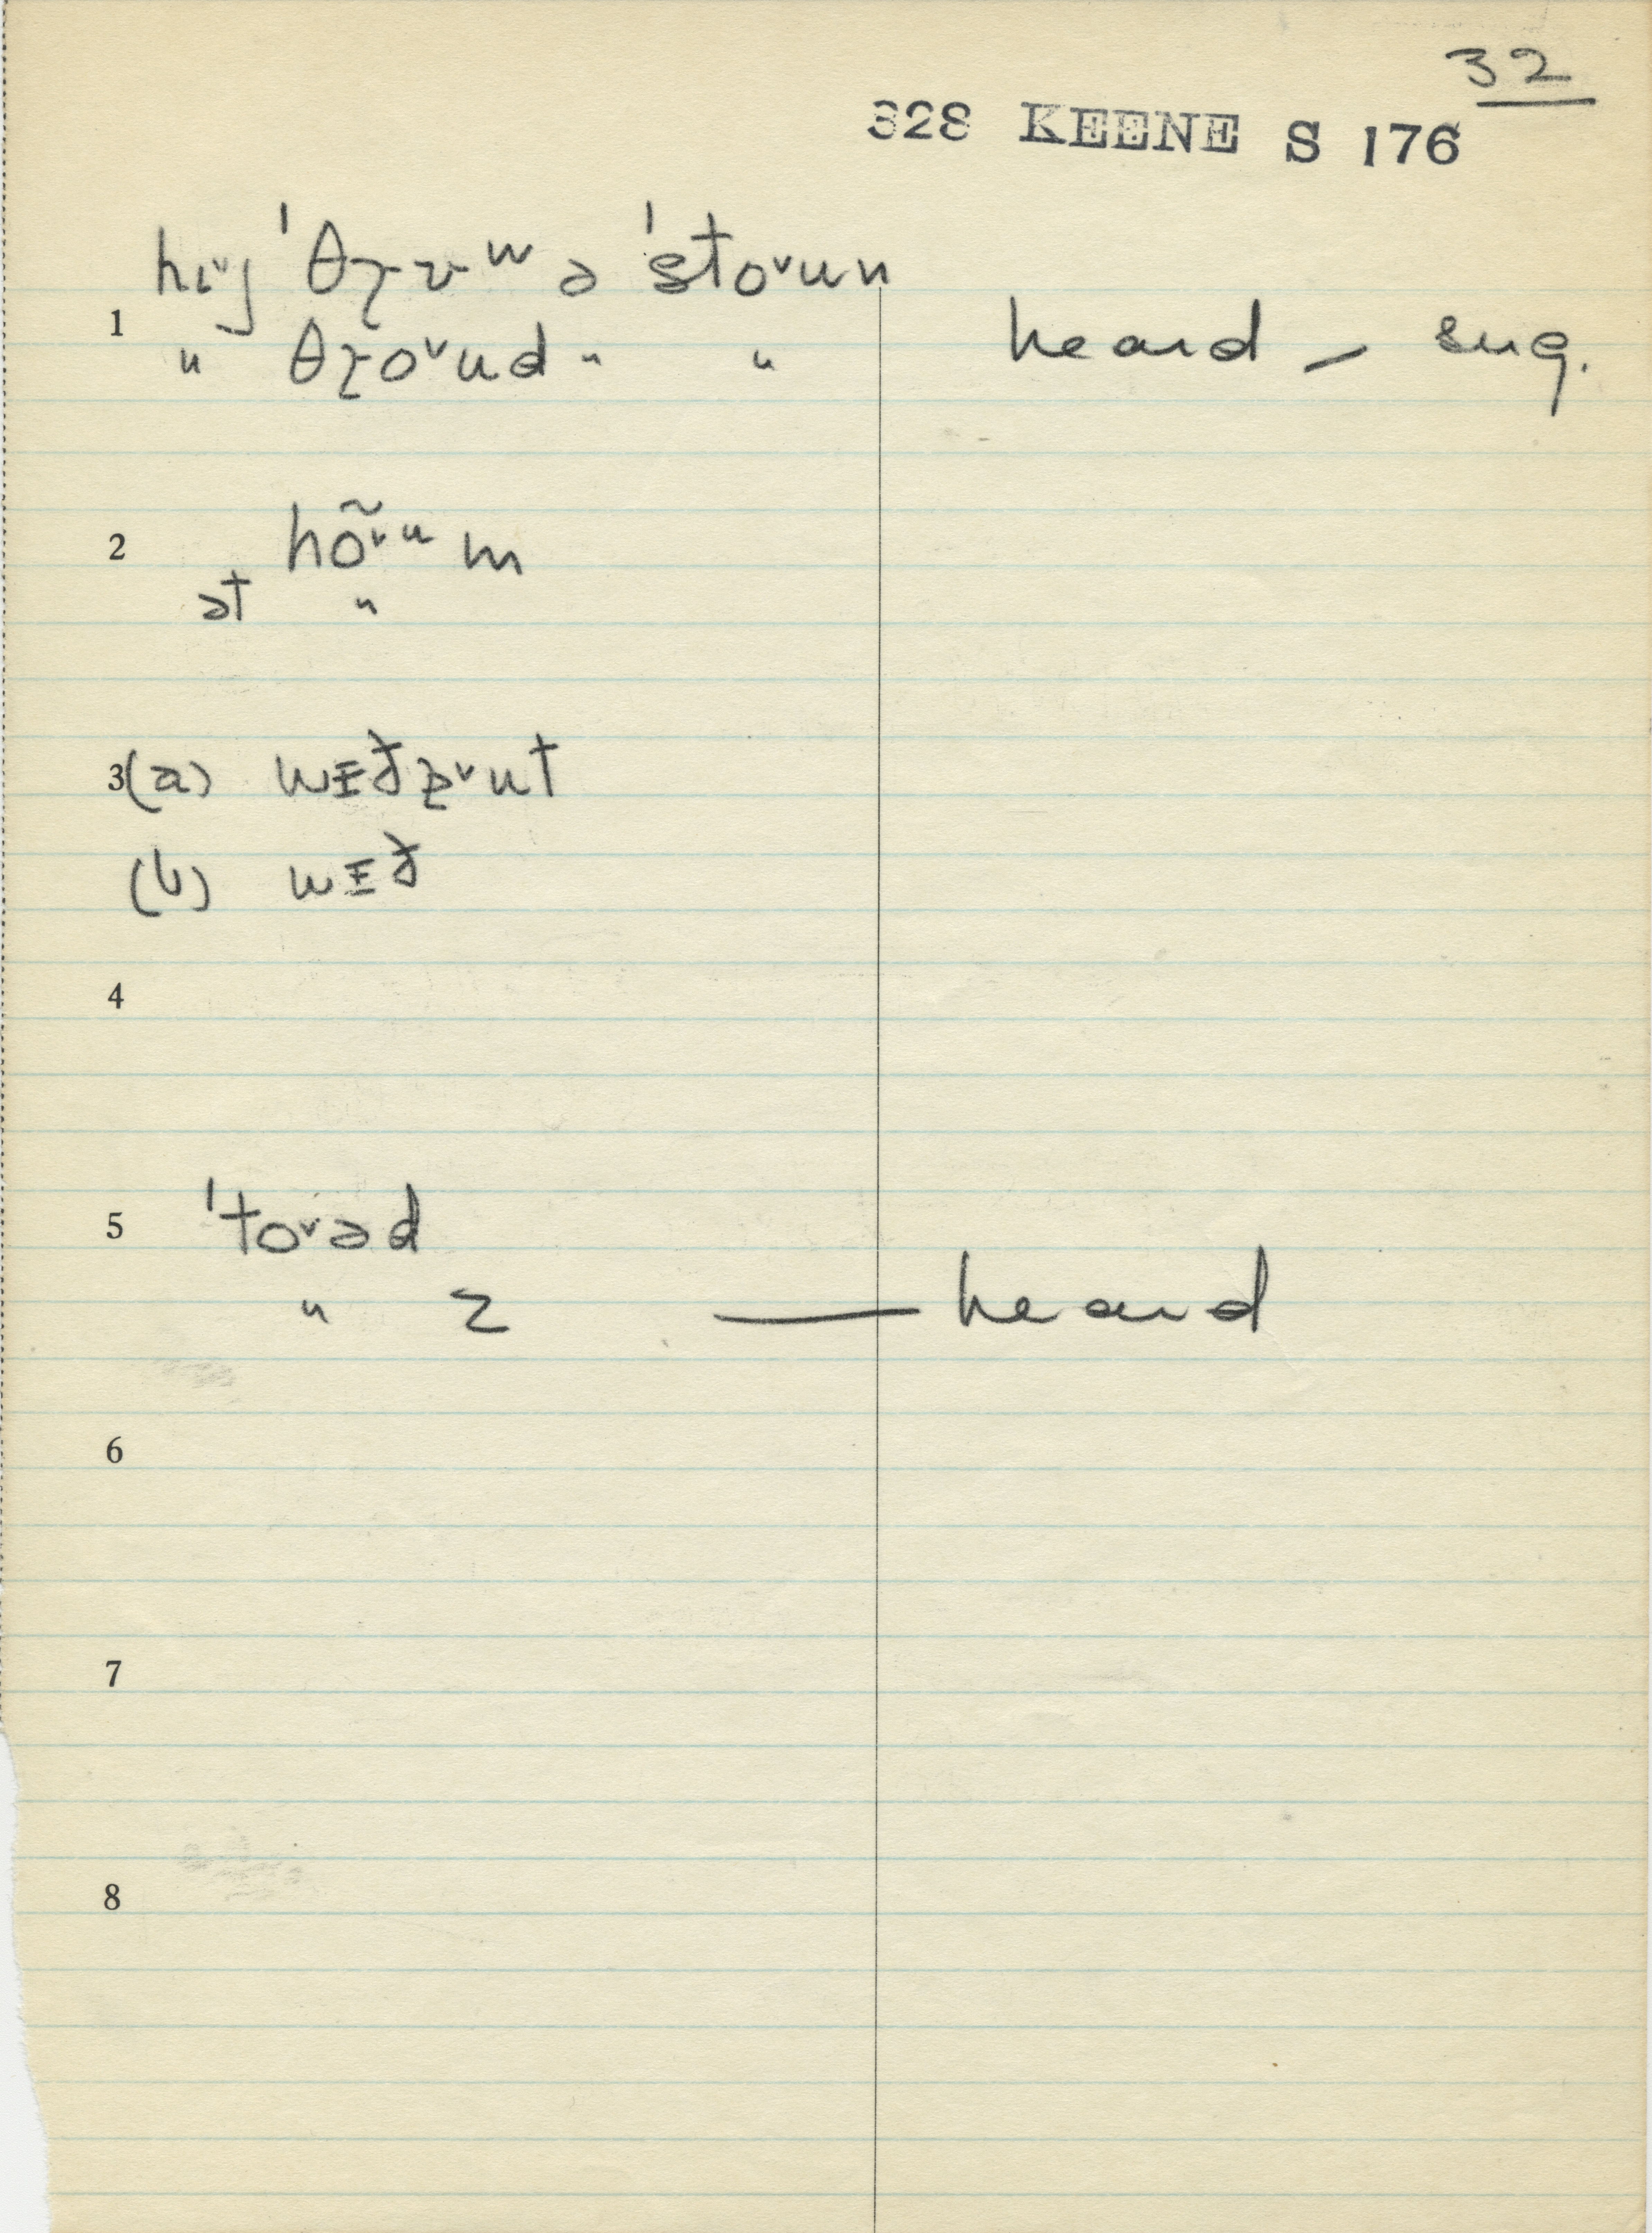 32
328 KEENE S 176
hi˅j ˈθɼɤʷ ə ˈsto˅un
1 " θɼo˅ud " " heard – sug.
2 hõ˅ᵘm
ət "
3(a) wɪð
(b) wɪð
4
5 ˈto˅əd
" z — heard
6
7
8